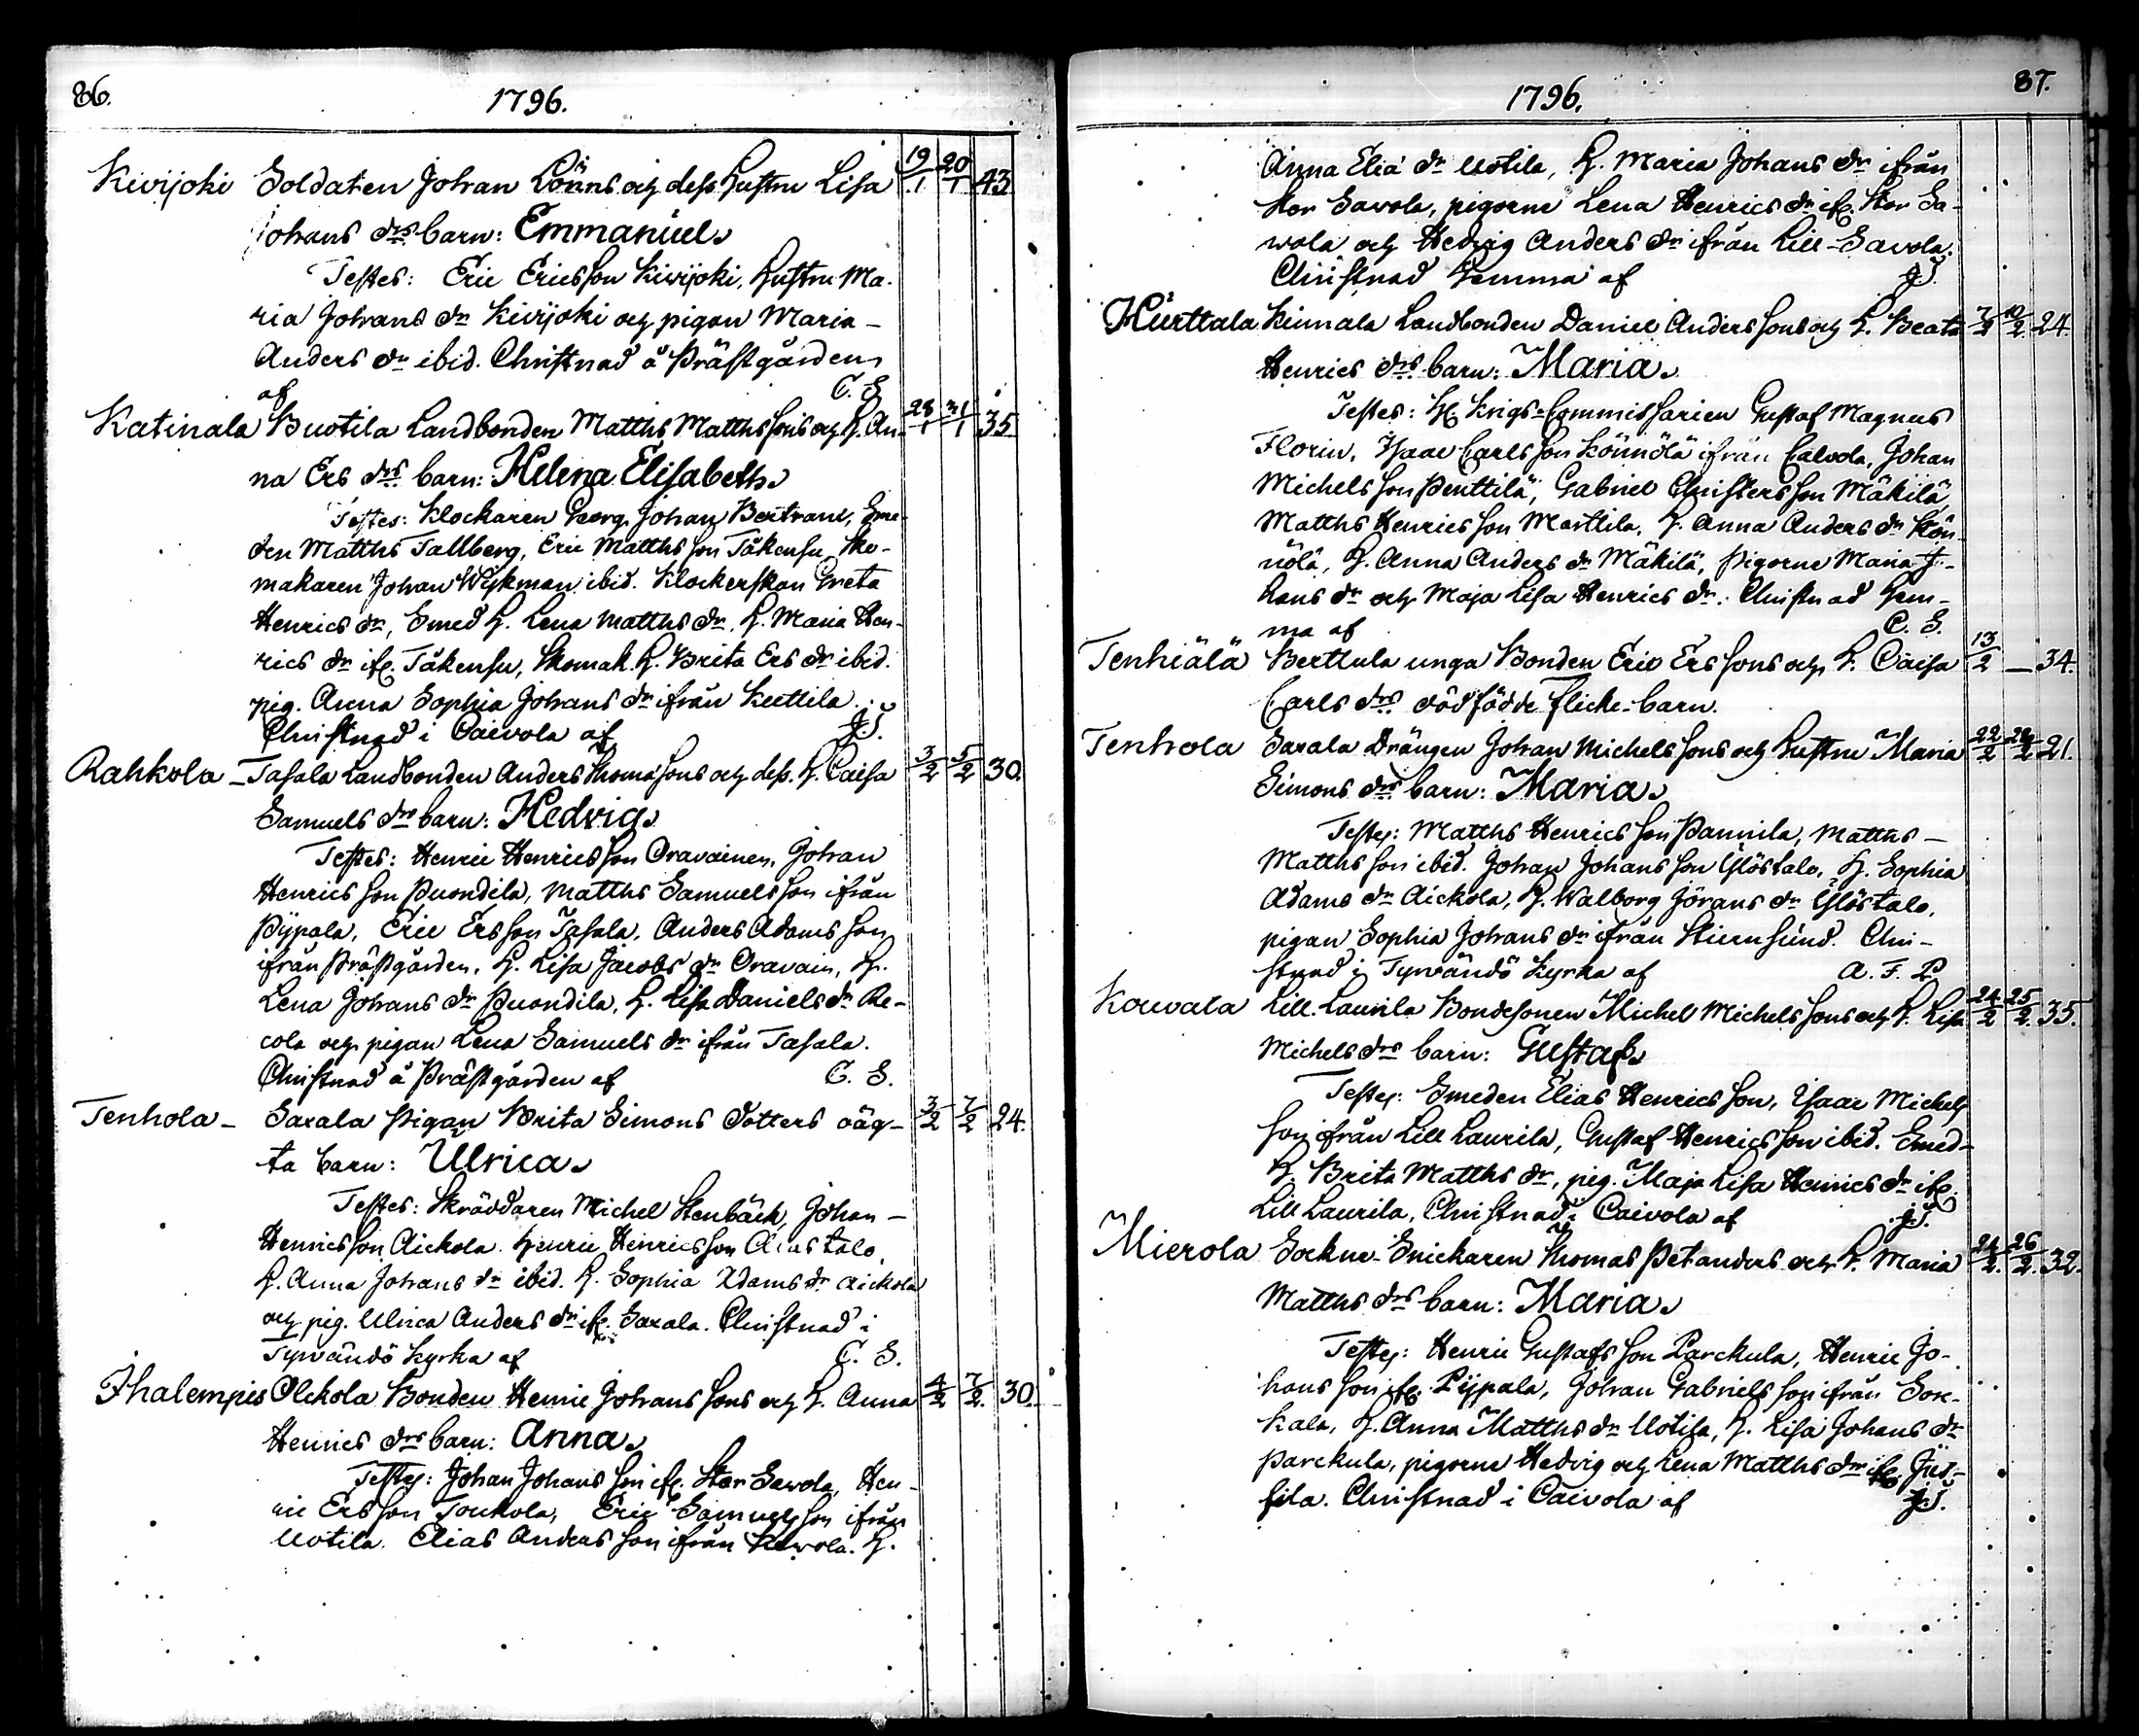 86.
1796.
Kivijoki Soldaten Johan Lönns och dess Hustru Lisa 19/1 20/1 43
Johans drs barn: Emmanuel.
Testes: Eric Ericsson Kivijoki, Hustru Ma-
ria Johans dr Kivijoki och pigan Maria –
Anders dr ibid. Christnad å Prästgården
af C. S.
Katinala Buotila Landbonden Matths Matthssons och H. An- 28/1 31/1 35.
na Ers drs barn: Helena Elisabeth.
Testes: Klockaren Georg Johan Bertrand, Sme-
den Matths Tallberg, Eric Matths son Täkensu, Sko-
makaren Johan Wijkman ibid. Klockerskan Greta
Henrics dr, Smed H. Lena Matths dr, H. Maria Hen-
rics dr ifr. Täkensu, Skomak. H. Brita Ers dr ibid.
pig. Anna Sophia Johans dr ifrån Kuttila.
Christnad i Caivola af J.T.
Rahkola – Tasala Landbonden Anders Thomæ sons och dess H. Caisa 3/2 5/2 30.
Samuels drs barn: Hedvig.
Testes: Henric Henrics son Oravainen, Johan
Henrics son Puondila, Matths Samuels son ifrån
Pijpala, Eric Ers son Tasala, Anders Adams son
ifrån Prästgården, H. Lisa Jacobs dr Oravain, H.
Lena Johans dr Puondila, H. Lisa Daniels dr Re-
cola och pigan Lena Samuels dr ifrån Tasala.
Christnad å Prästgården af C. S.
Tenhola – Saxala Pigan Brita Simons Dotters oäg- 3/2 7/2 24.
ta barn: Ulrica.
Testes: Skräddaren Michel Stenbäck, Johan –
Henrics son Aickola. Henric Henrics son Alastalo,
H. Anna Johans dr ibid. H. Sophia Adams dr Aickola
och pig. Ulrica Anders dr ifr. Saxala. Christnad i
Tyrvändö Kyrka af C. S.
Ihalempis Olckola Bonden Henric Johans sons och H. Anna 4/2 7/2 30.
Henrics drs barn: Anna.
Testes: Johan Johans son ifr. Stor Sawola, Hen-
ric Ers son Toukola, Eric Samuels son ifrån
Uotila. Elias Anders son ifrån Sawola. H.
87.
1796.
Anna Eliæ dr Uotila, H. Maria Johans dr ifrån
Stor Sawola, pigorne Lena Henrics dr ifr. Stor Sa-
wola och Hedvig Anders dr ifrån Lill-Savola.
Christnad hemma af J.T.
Hürttala Keinnala Landbonden Daniel Anders sons och H. Beata 7/2 10/2 24.
Henrics drs barn: Maria.
Testes: H: Krigs-Commissarien Gustaf Magnus
Florin, Isaac Carls son Könnölä ifrån Calvola, Johan
Michels son Penttilä, Gabriel Christers son Mäkilä,
Matths Henrics son Marttila, H. Anna Anders dr Kön-
nölä, H. Anna Anders dr Mäkilä, Pigorne Maria Jo-
hans dr och Maja Lisa Henrics dr. Christnad hem-
ma af C. S.
Tenhiälä Berttula unga Bonden Eric Ers sons och H. Caisa 13/2 – 34.
Carls drs dödfödde Flicke-barn.
Tenhola Saxala Drängen Johan Michels sons och Hustru Maria 22/2 24/2 21.
Simons drs barn: Maria.
Testes: Matths Henrics son Pannila, Matths –
Matths son ibid. Johan Johans son Ylöstalo, H. Sophia
Adams dr Aickola, H. Walborg Görans dr Ylöstalo,
pigan Sophia Johans dr ifrån Stiernsund. Chri-
stnad i Tyrvändö Kyrka af A. F. P.
Kouvala Lill. Laurila Bondesonen Michel Michels sons och H. Lisa 24/2 25/2 35.
Michels drs barn: Gustaf.
Testes: Smeden Elias Henrics son, Isaac Michels
son ifrån Lill Laurila, Gustaf Henrics son ibid. Smed-
H. Brita Matths dr, pig. Maja Lisa Henrics dr ifr.
Lill Laurila, Christnad i Caivola af J.T.
Mierola Sockne-Snickaren Thomas Petanders och H. Maria 24/2. 26/2. 32.
Matths drs barn: Maria.
Testes: Henric Gustafs son Parckula, Henric Jo-
hans son ifr. Pijpala, Johan Gabriels son ifrån Sor-
kala, H. Anna Matths dr Uotila, H. Lisa Johans dr
Parckula, pigorne Hedvig och Lena Matths dr ifr. Jut-
sila. Christnad i Caivola af J.T.